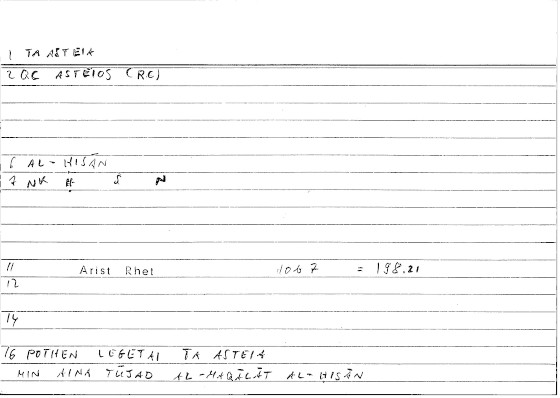 1 TA ASTEIA
2 QC ASTEIOS (RC)
6 AL-ḤISĀN
7 NK Ḥ S N
11 Arist Rhet 10b7 = 198.21
12
14
16 POTHEN LEGETAI TA ASTEIA
MIN AINA TŪJAD AL-MAQĀLĀT AL-ḤISĀN